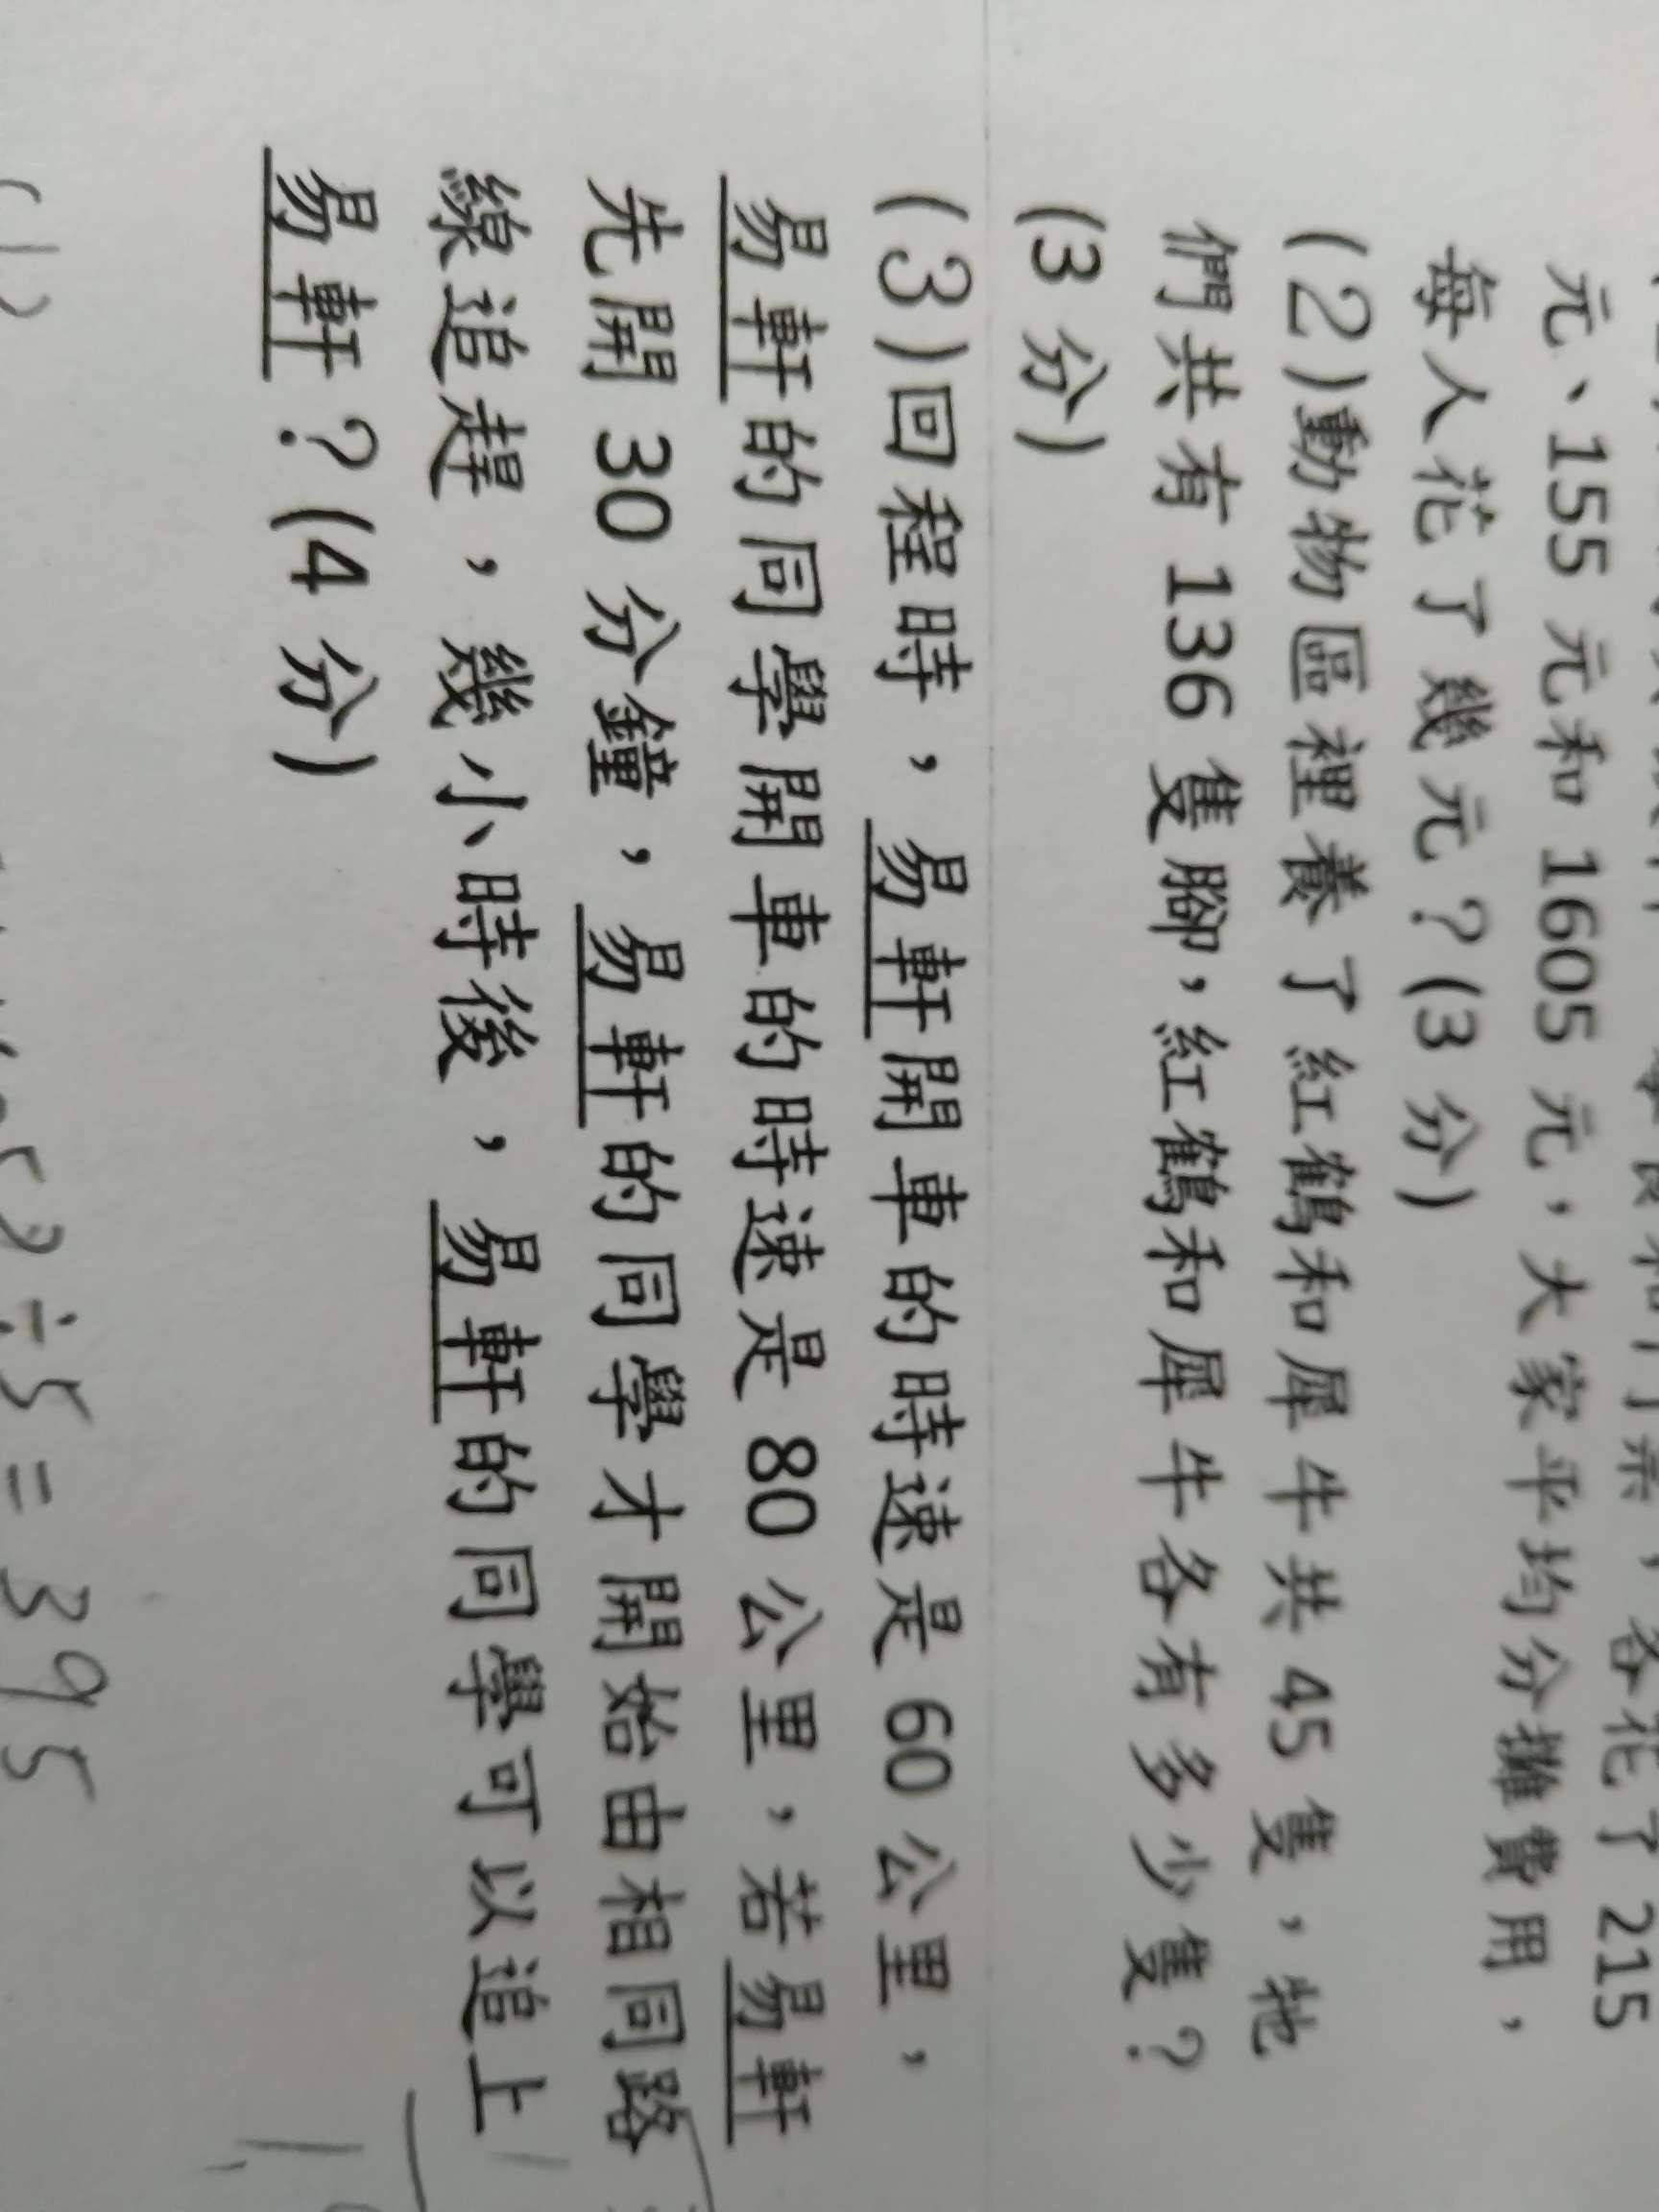 各花了 215
元、155 元和 1605 元，大家平均分攤費用，
每人花了幾元？(3 分)
(2)動物區裡養了紅鶴和犀牛共 45 隻，牠
們共有 136 隻腳，紅鶴和犀牛各有多少隻？
(3 分)
(3)回程時，易軒開車的時速是 60 公里，
易軒的同學開車的時速是 80 公里，若易軒
先開 30 分鐘，易軒的同學才開始由相同路
線追趕，幾小時後，易軒的同學可以追上
易軒？(4 分)
(1)
÷5=395